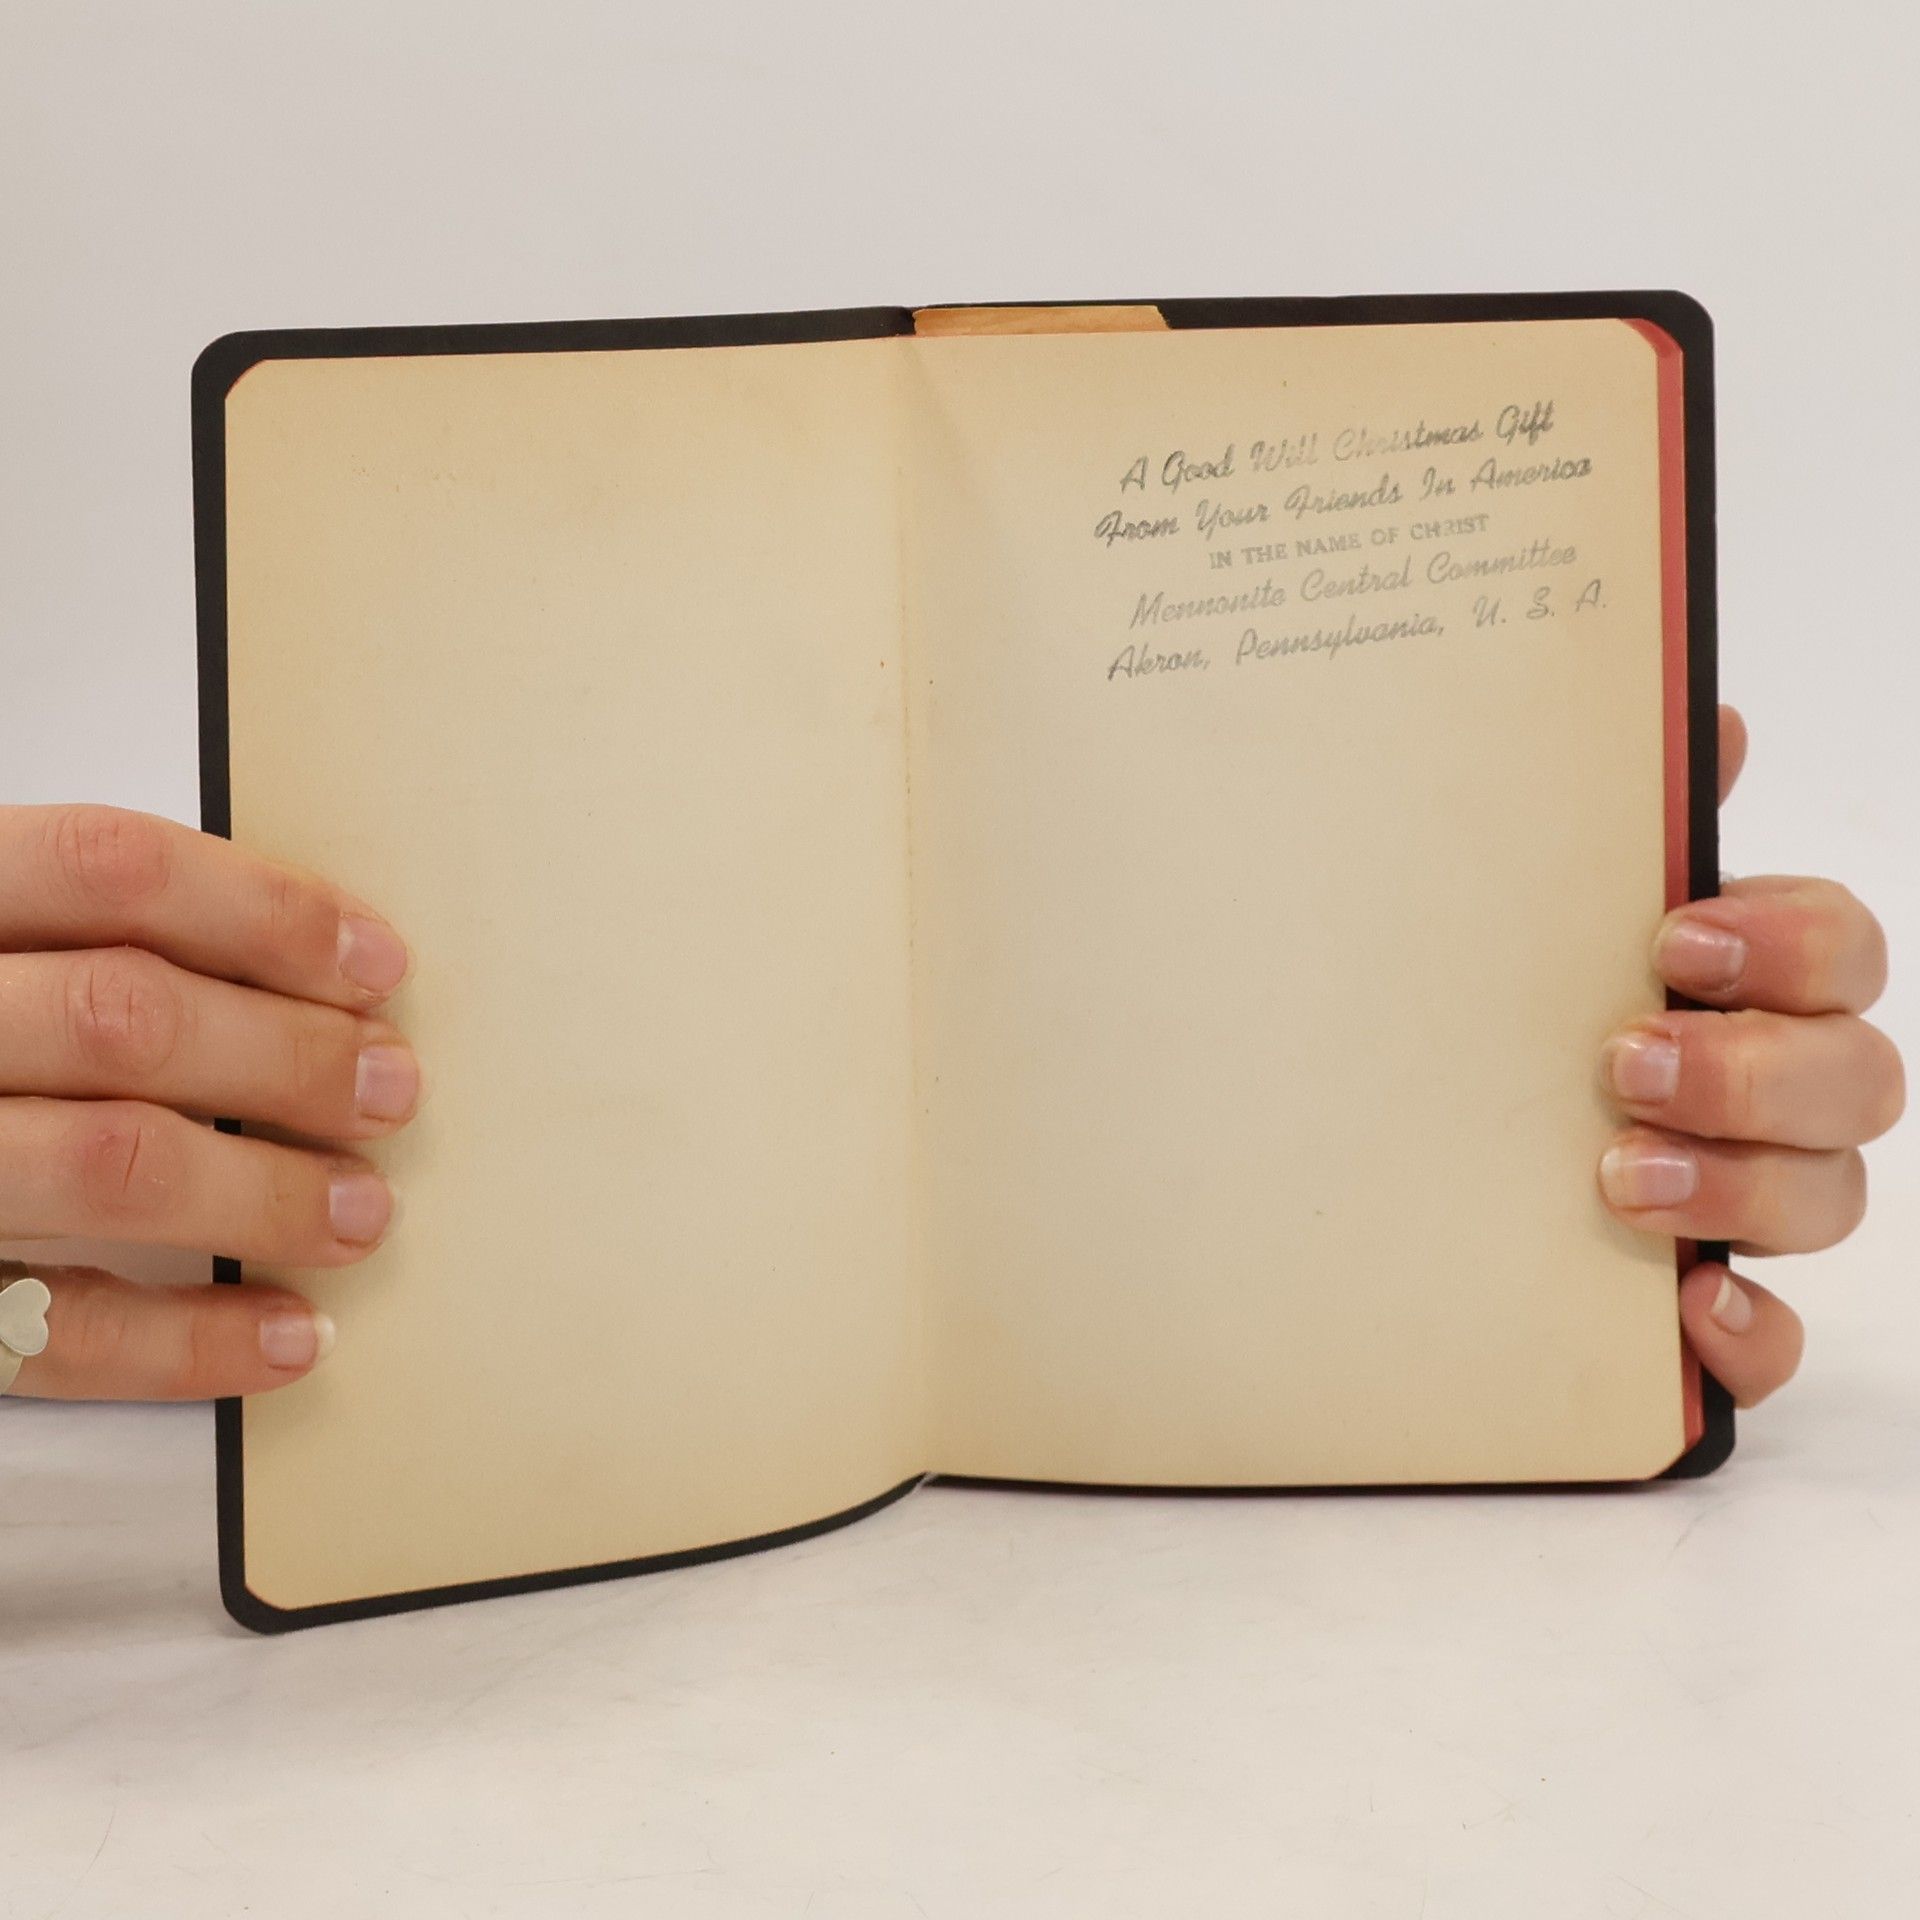 A Good Will Christmas Gift
From Your Friends In America
IN THE NAME OF CHRIST
Mennonite Central Committee
Akron, Pennsylvania, U. S. A.